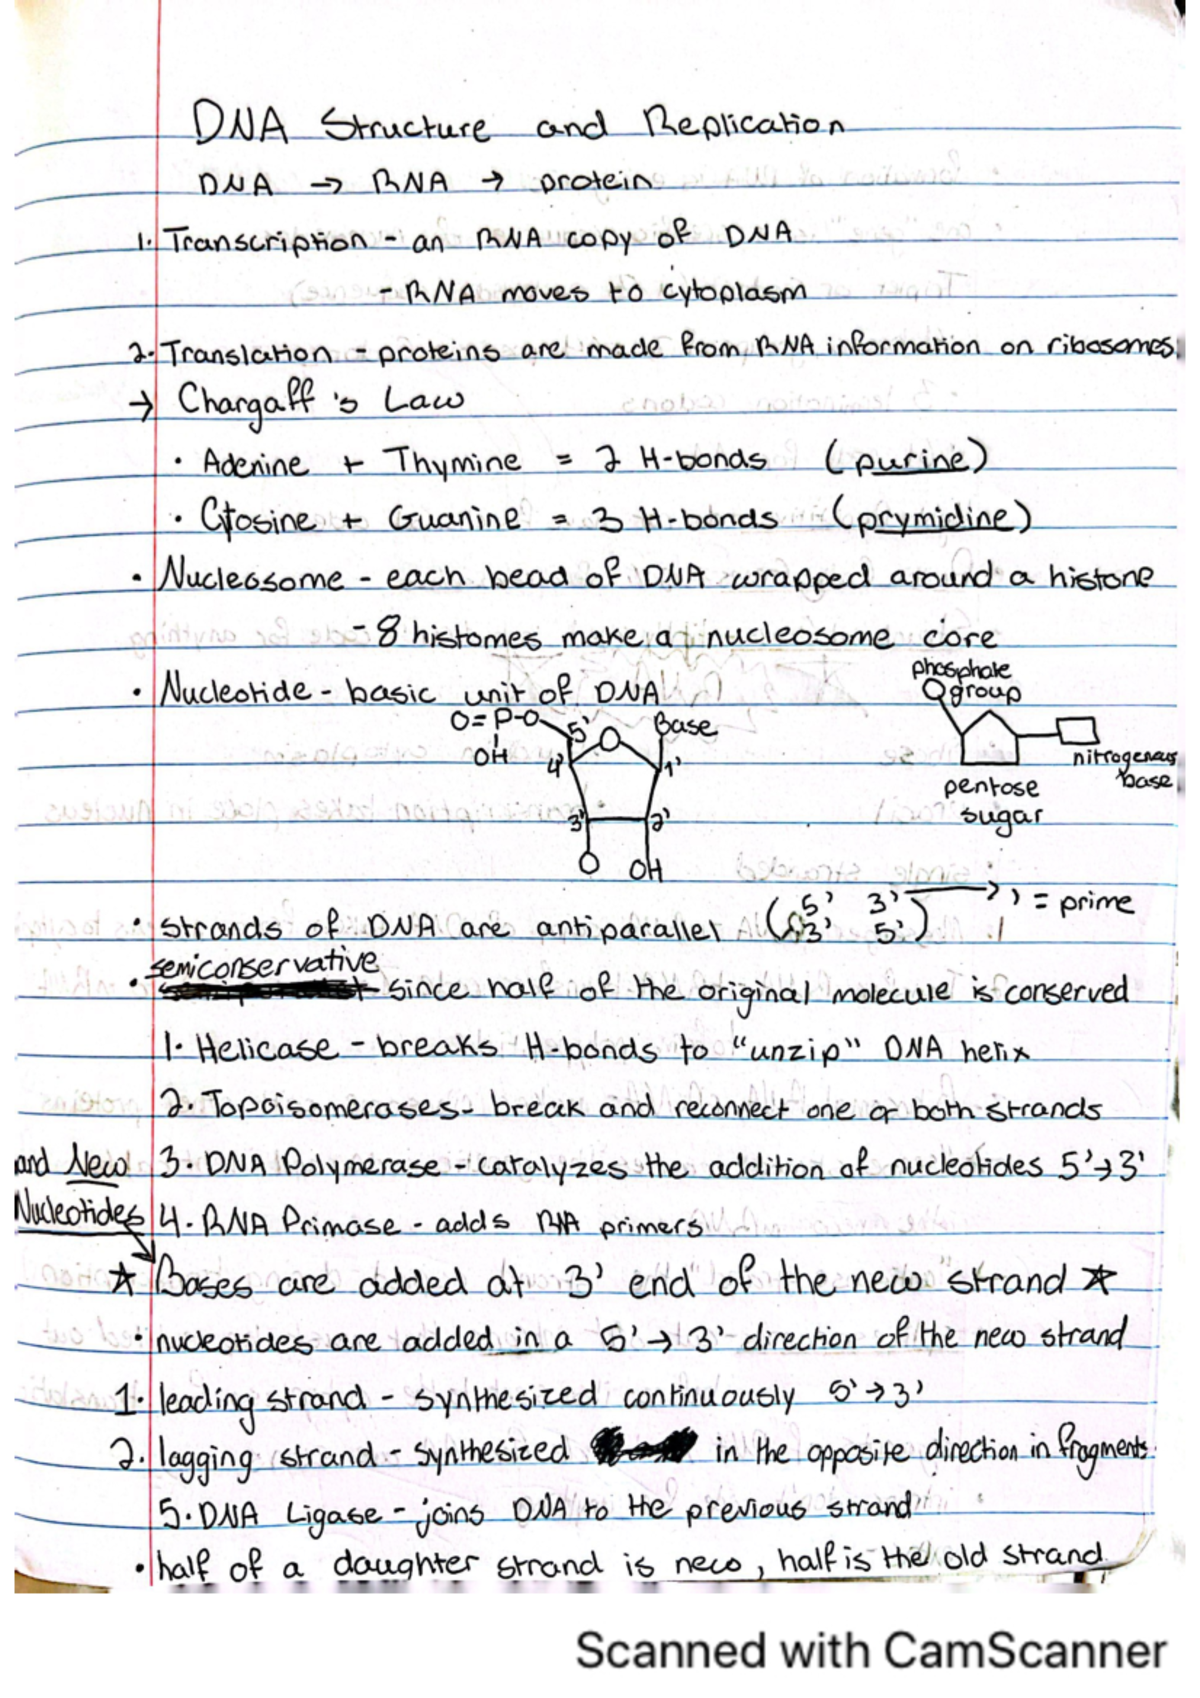 DNA Structure and Replication
DNA → RNA → protein
1. Transcription - an RNA copy of DNA
- RNA moves to cytoplasm
2. Translation - proteins are made from RNA information on ribosomes
→ Chargaff's Law
• Adenine + Thymine = 2 H-bonds (purine)
• Cytosine + Guanine = 3 H-bonds (prymidine)
• Nucleosome - each bead of DNA wrapped around a histone
- 8 histomes make a nucleosome core
• Nucleotide - basic unit of DNA
phosphate
group
O=P-O
OH
5'
O
Base
4'
1'
3'
2'
O
OH
nitrogenous
base
pentose
sugar
• strands of DNA are antiparallel (5' 3'
3' 5') → ' = prime
semiconservative
• since half of the original molecule is conserved
1. Helicase - breaks H-bonds to "unzip" DNA helix
2. Topoisomerases - break and reconnect one or both strands
3. DNA Polymerase - catalyzes the addition of nucleotides 5'→3'
4. RNA Primase - adds RNA primers
and New
Nucleotides
★ Bases are added at 3' end of the new strand ★
• nucleotides are added in a 5'→3' direction of the new strand
1. leading strand - synthesized continuously 5'→3'
2. lagging strand - synthesized in the opposite direction in fragments
5. DNA Ligase - joins DNA to the previous strand
• half of a daughter strand is new, half is the old strand.
Scanned with CamScanner